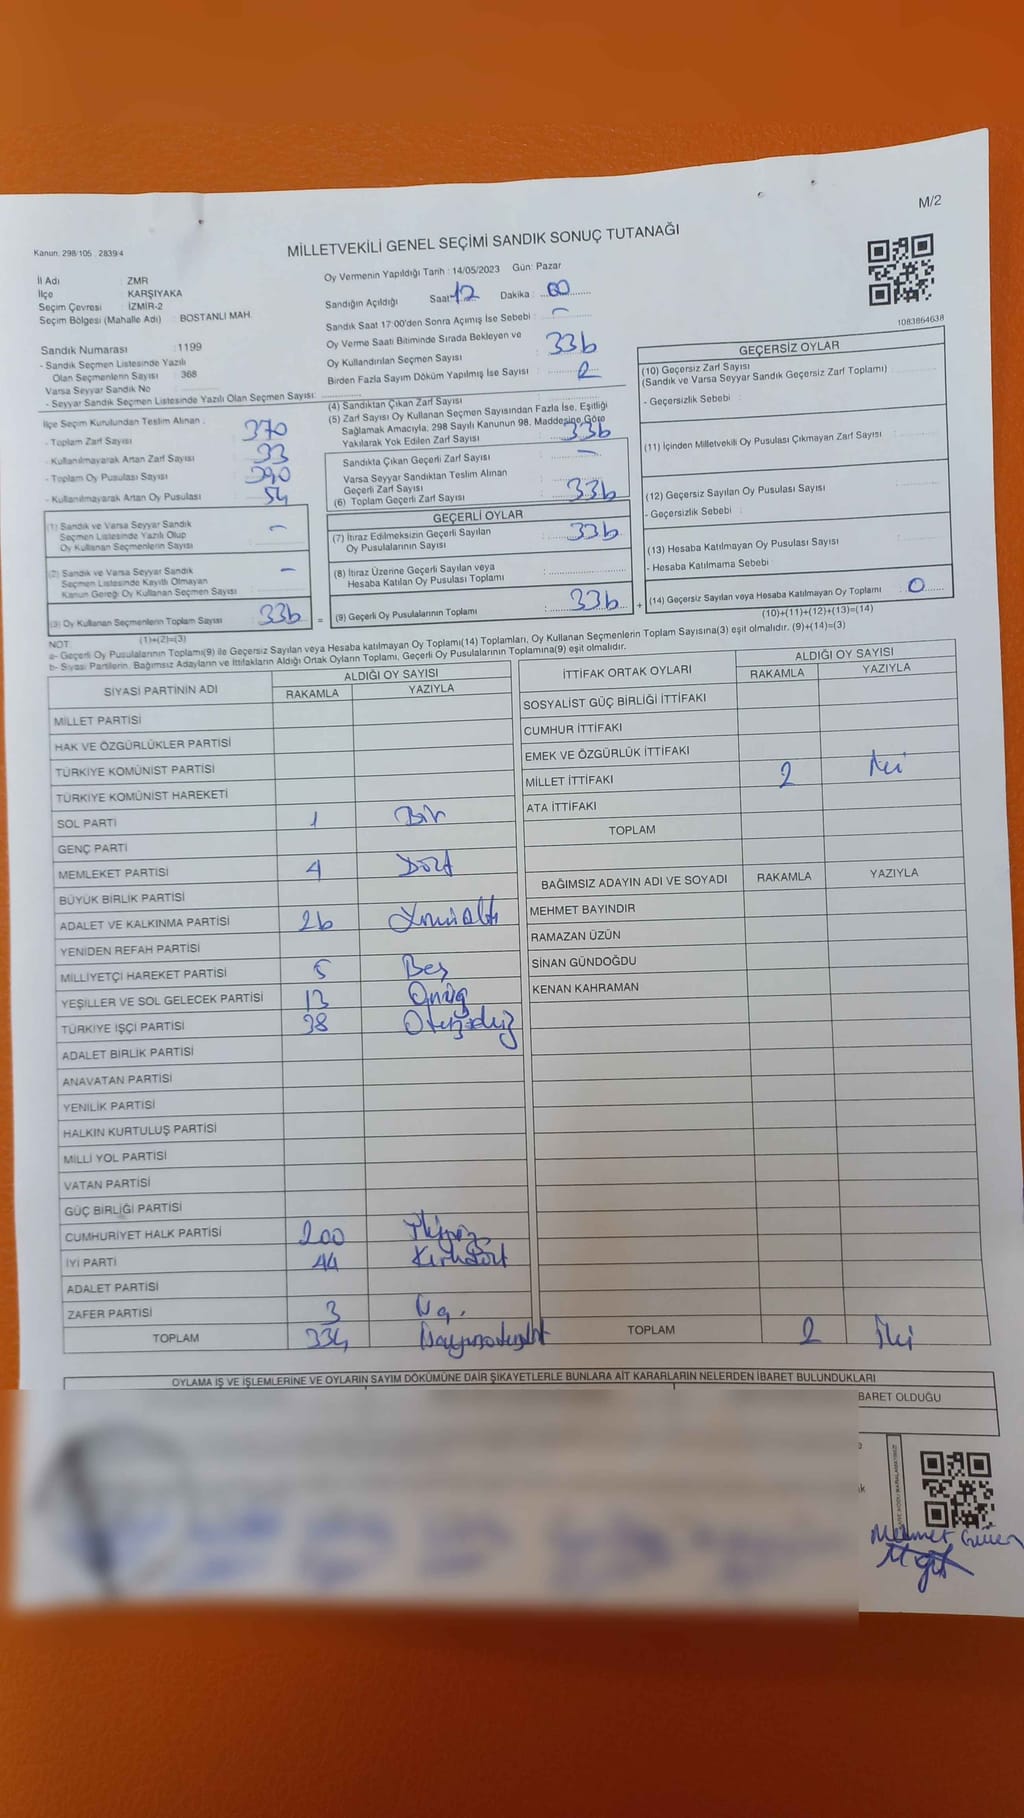 M/2
Kanun: 298/105 , 2839/4
MİLLETVEKİLİ GENEL SEÇİMİ SANDIK SONUÇ TUTANAĞI
1083864638
İl Adı : ZMR
İlçe : KARŞIYAKA
Seçim Çevresi : İZMİR-2
Seçim Bölgesi (Mahalle Adı) : BOSTANLI MAH.
Sandık Numarası : 1199
- Sandık Seçmen Listesinde Yazılı
Olan Seçmenlerin Sayısı : 368
Varsa Seyyar Sandık No :
- Seyyar Sandık Seçmen Listesinde Yazılı Olan Seçmen Sayısı:
Oy Vermenin Yapıldığı Tarih : 14/05/2023 Gün: Pazar
Sandığın Açıldığı Saat: 12 Dakika : 00
Sandık Saat 17:00'den Sonra Açımış İse Sebebi : -
Oy Verme Saati Bitiminde Sırada Bekleyen ve
Oy Kullandırılan Seçmen Sayısı : 336
Birden Fazla Sayım Döküm Yapılmış İse Sayısı : 2
İlçe Seçim Kurulundan Teslim Alınan :
- Toplam Zarf Sayısı : 370
- Kullanılmayarak Artan Zarf Sayısı : 33
- Toplam Oy Pusulası Sayısı : 390
- Kullanılmayarak Artan Oy Pusulası : 54
(1) Sandık ve Varsa Seyyar Sandık
Seçmen Listesinde Yazılı Olup
Oy Kullanan Seçmenlerin Sayısı : -
(2) Sandık ve Varsa Seyyar Sandık
Seçmen Listesinde Kayıtlı Olmayan
Kanun Gereği Oy Kullanan Seçmen Sayısı : -
(3) Oy Kullanan Seçmenlerin Toplam Sayısı : 336
(1)+(2)=(3)
(4) Sandıktan Çıkan Zarf Sayısı
(5) Zarf Sayısı Oy Kullanan Seçmen Sayısından Fazla İse, Eşitliği
Sağlamak Amacıyla, 298 Sayılı Kanunun 98. Maddesine Göre
Yakılarak Yok Edilen Zarf Sayısı : 336
Sandıkta Çıkan Geçerli Zarf Sayısı : -
Varsa Seyyar Sandıktan Teslim Alınan
Geçerli Zarf Sayısı
(6) Toplam Geçerli Zarf Sayısı : 336
GEÇERLİ OYLAR
(7) İtiraz Edilmeksizin Geçerli Sayılan
Oy Pusulalarının Sayısı : 336
(8) İtiraz Üzerine Geçerli Sayılan veya
Hesaba Katılan Oy Pusulası Toplamı :
= (9) Geçerli Oy Pusulalarının Toplamı : 336 +
GEÇERSİZ OYLAR
(10) Geçersiz Zarf Sayısı
(Sandık ve Varsa Seyyar Sandık Geçersiz Zarf Toplamı) :
- Geçersizlik Sebebi :
(11) İçinden Milletvekili Oy Pusulası Çıkmayan Zarf Sayısı :
(12) Geçersiz Sayılan Oy Pusulası Sayısı :
- Geçersizlik Sebebi :
(13) Hesaba Katılmayan Oy Pusulası Sayısı :
- Hesaba Katılmama Sebebi :
(14) Geçersiz Sayılan veya Hesaba Katılmayan Oy Toplamı : 0
(10)+(11)+(12)+(13)=(14)
NOT:
a- Geçerli Oy Pusulalarının Toplamı(9) ile Geçersiz Sayılan veya Hesaba katılmayan Oy Toplamı(14) Toplamları, Oy Kullanan Seçmenlerin Toplam Sayısına(3) eşit olmalıdır. (9)+(14)=(3)
b- Siyasi Partilerin, Bağımsız Adayların ve İttifakların Aldığı Ortak Oyların Toplamı, Geçerli Oy Pusulalarının Toplamına(9) eşit olmalıdır.
SİYASİ PARTİNİN ADI ALDIĞI OY SAYISI
RAKAMLA YAZIYLA
MİLLET PARTİSİ
HAK VE ÖZGÜRLÜKLER PARTİSİ
TÜRKİYE KOMÜNİST PARTİSİ
TÜRKİYE KOMÜNİST HAREKETİ
SOL PARTİ 1 Bir
GENÇ PARTİ
MEMLEKET PARTİSİ 4 Dört
BÜYÜK BİRLİK PARTİSİ
ADALET VE KALKINMA PARTİSİ 26 Yirmialtı
YENİDEN REFAH PARTİSİ
MİLLİYETÇİ HAREKET PARTİSİ 5 Beş
YEŞİLLER VE SOL GELECEK PARTİSİ 13 Onüç
TÜRKİYE İŞÇİ PARTİSİ 38 Otuzsekiz
ADALET BİRLİK PARTİSİ
ANAVATAN PARTİSİ
YENİLİK PARTİSİ
HALKIN KURTULUŞ PARTİSİ
MİLLİ YOL PARTİSİ
VATAN PARTİSİ
GÜÇ BİRLİĞİ PARTİSİ
CUMHURİYET HALK PARTİSİ 200 İkiyüz
İYİ PARTİ 44 Kırkdört
ADALET PARTİSİ
ZAFER PARTİSİ 3 Üç.
TOPLAM 334
İTTİFAK ORTAK OYLARI ALDIĞI OY SAYISI
RAKAMLA YAZIYLA
SOSYALİST GÜÇ BİRLİĞİ İTTİFAKI
CUMHUR İTTİFAKI
EMEK VE ÖZGÜRLÜK İTTİFAKI
MİLLET İTTİFAKI 2 İki
ATA İTTİFAKI
TOPLAM
BAĞIMSIZ ADAYIN ADI VE SOYADI RAKAMLA YAZIYLA
MEHMET BAYINDIR
RAMAZAN ÜZÜN
SİNAN GÜNDOĞDU
KENAN KAHRAMAN
TOPLAM 2 İki
OYLAMA İŞ VE İŞLEMLERİNE VE OYLARIN SAYIM DÖKÜMÜNE DAİR ŞİKAYETLERLE BUNLARA AİT KARARLARIN NELERDEN İBARET BULUNDUKLARI
BARET OLDUĞU
Mehmet